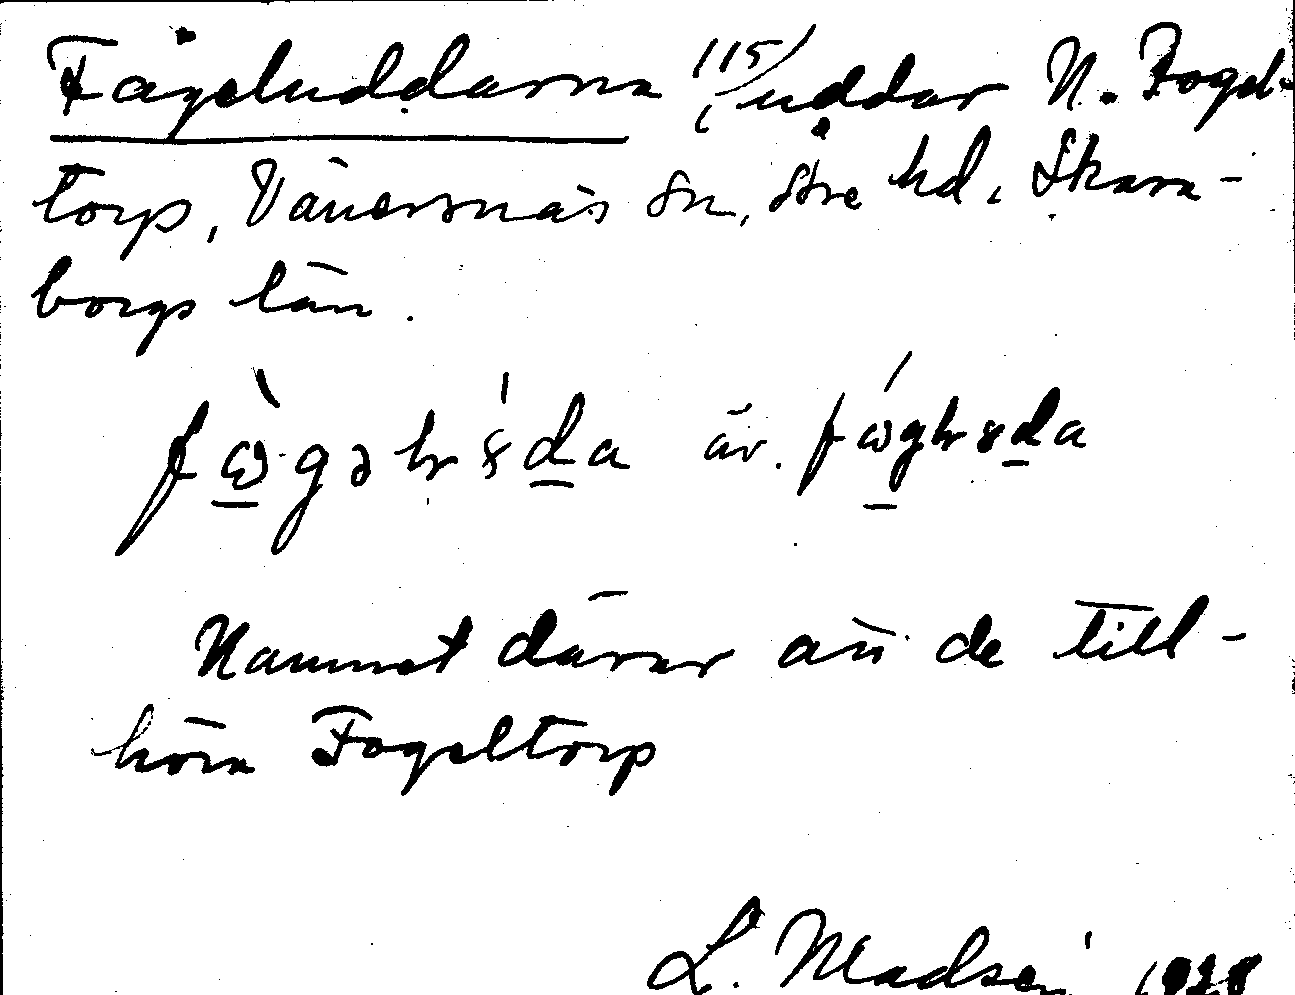 Fågeluddarna 115/ uddar N. Fogel-
torp, Vänersnäs sn, Åse hd, Skara-
borgs län.
äv.
Namnet därav att de till-
höra Fogeltorp
L. Madsén 1928